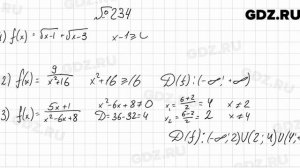 GDZ.RU
№ 234
1) f(x) = √x-1 + √x-3   x-1≥0
2) f(x) = 9/(x²+16)   x²+16 ≥16   D(f): (-∞; +∞)
3) f(x) = (5x+1)/(x²-6x+8)   x²-6x+8≠0   x₁ = (6+2)/2 = 4   x≠2
D=36-32=4   x₂ = (6-2)/2 = 2   x≠4
D(f): (-∞; 2)U(2; 4)U(4;
GDZ.RU